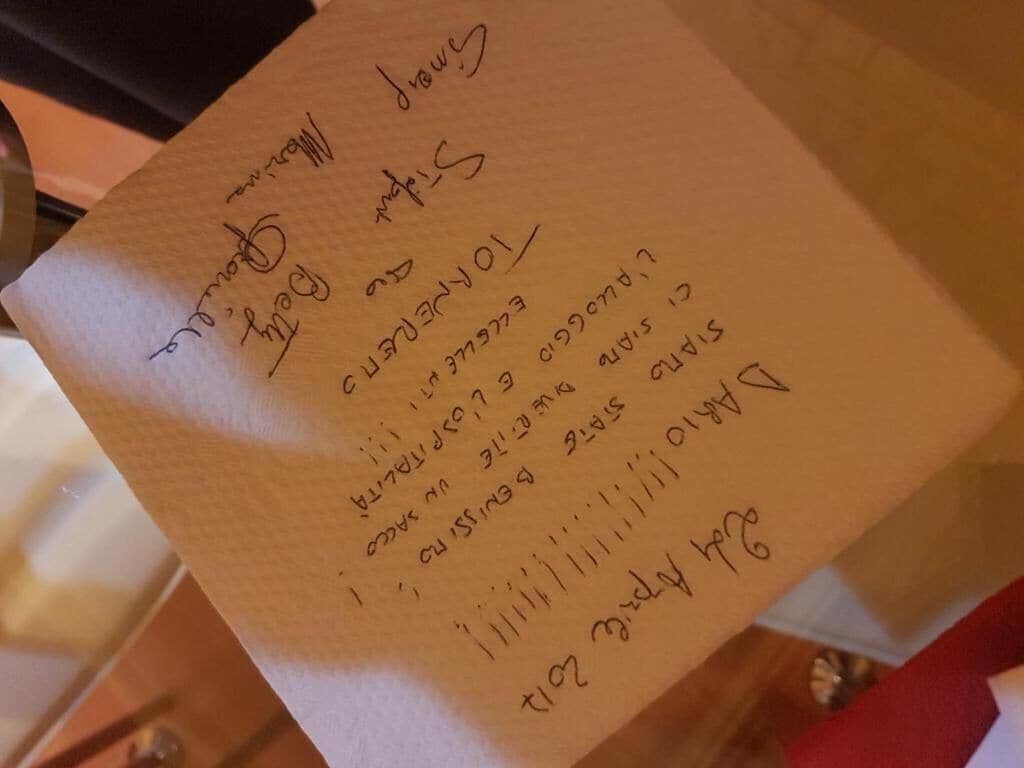 24 Aprile 2017
DARIO!!!!!!!!!!!!!!!!
SIAMO STATE BENISSIMO!
CI SIAMO DIVERTITE UN SACCO!
L'ALLOGGIO E L'OSPITALITÀ
ECCELLENTI!!!
TORNEREMO
Betty
Marina